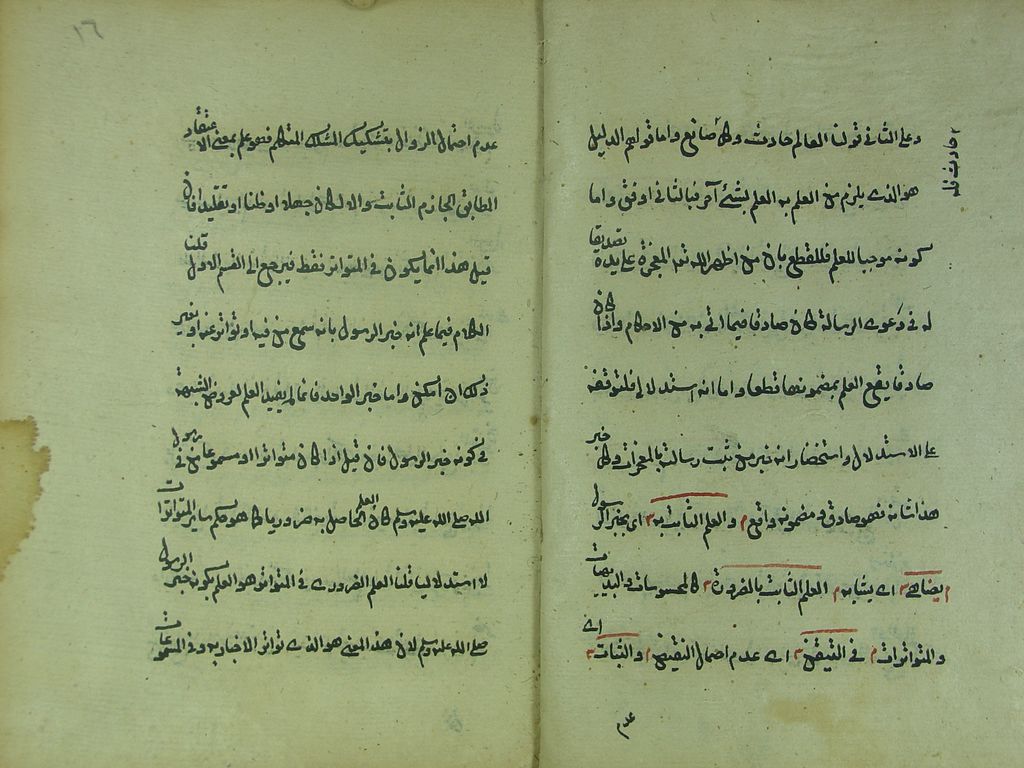 وعلى الثاني قولنا العالم حادث وكل حادث فله صانع واما قولهم الدليل
هو الذي يلزم من العلم به العلم بشئ آخر فبالثاني اوفق واما
كونه موجبا للعلم فللقطع بان من اظهر الله تعه المعجزة على يده تصديقا
له في دعوى الرسالة كان صادقا فيما اتى به من الاحكام واذا كان
صادقا يقع العلم بمضمونها قطعا واما انه استدلالي فلتوقفه
على الاستدلال واستحضار انه خبر من ثبت رسالته بالمعجزات وكل خبر
هذا شانه فهو صادق ومضمونه واقع م والعلم الثابت به م اى بخبر الرسول
م يضاهى م اى يشابه م العلم الثابت بالضرورة م كالمحسوسات والبديهيات
والمتواترات م في التيقن م اى عدم احتمال النقيض م والثبات م اى
عدم
١٦
عدم احتمال الزوال بتشكيك المشكك فهو علم بمعنى الاعتقاد
المطابق الجازم الثابت والا لكان جهلا او ظنا او تقليدا فان
قيل هذا انما يكون في المتواتر فقط فيرجع الى القسم الاول قلنا
الكلام فيما علم انه خبر الرسول بانه سمع من فيه او تواتر عنه او بغير
ذلك ان امكن واما خبر الواحد فانما لم يفيد العلم لعروض الشبهة
في كونه خبر الرسول فان قيل اذا كان متواترا او مسموعا من في رسول
الله صلى الله عليه وسلم كان العلم الحاصل به ضروريا كما هو حكم ساير المتواترات
لا استدلاليا قلنا العلم الضروري في المتواتر هو العلم بكونه خبر الرسول
صلى الله عليه وسلم لان هذا المعنى هو الذي تواتر الاخبار به وفي المسموعات